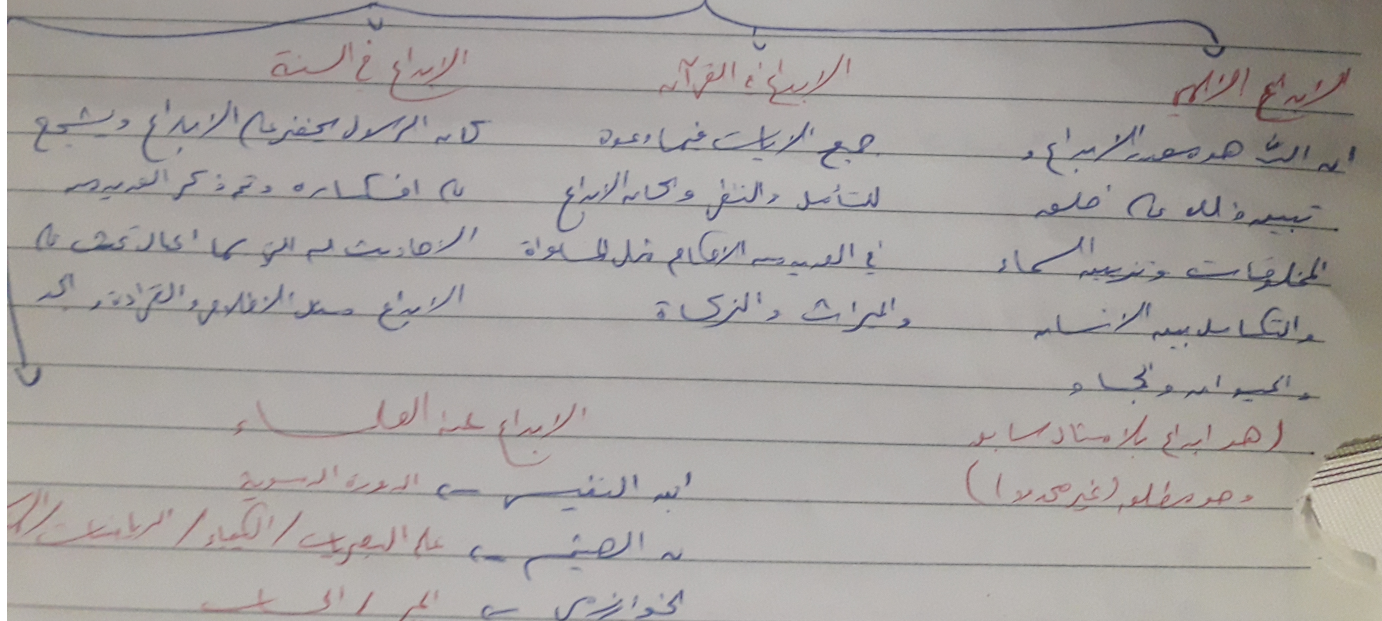 الإبداع الإلهي
ان الله هو مصدر الإبداع و
تبين ذلك في خلق
المخلوقات وتزيين السماء
والتكامل بين الانسان
والحيوان والجماد
(هو ابداع بلا مثال سابق
وهو مطلق (غير محدود)
الابداع في القرآن
جميع الايات فيها دعوة
للتأمل والتفكر وكان الابداع
في العديد من الاحكام مثل المساواة
والميراث والزكاة
الإبداع في السنة
كان الرسول يحفز على الابداع ويشجع
على افكاره وتم ذكر العديد من
الاحاديث
الابداع
الابداع عند العلماء
ابن النفيس ← الدورة الدموية
بن الهيثم ← علم البصريات / الكيمياء / الرياضيات /
الخوارزمي ← الجبر / الحساب